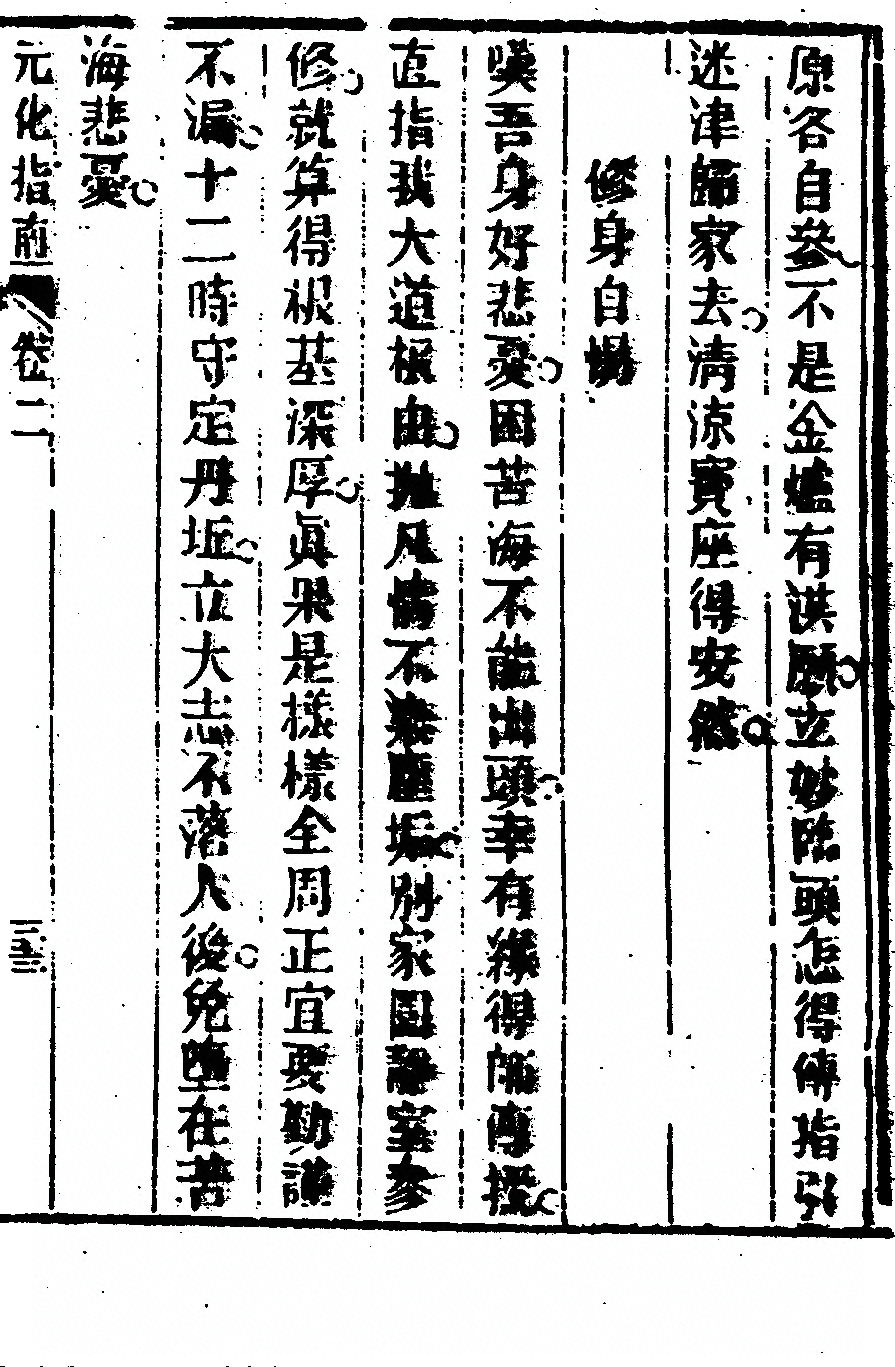 原各自參不是金爐有洪願立妙臨頭怎得傳指引
迷津歸家去清涼寶座得安然
修身自懶
嘆吾身好悲憂困苦海不能出頭幸有緣得師傳授
直指我大道根由拋凡情不染塵垢別家園靜室參
修就算得根基深厚眞果是樣樣全周正宜要勤謹
不漏十二時守定丹坵立大志不落人後免墮在苦
海悲憂
元化指南 卷二 三五三